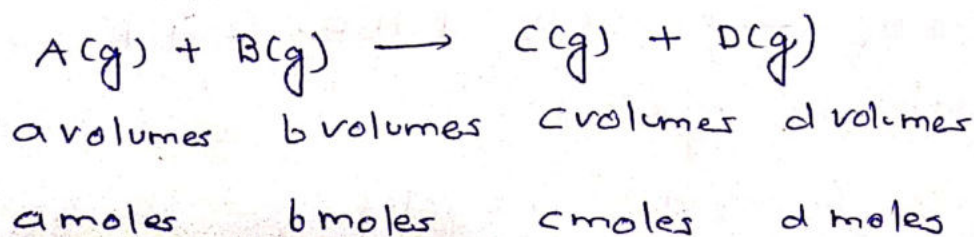 A(g) + B(g) ⟶ C(g) + D(g)
a volumes b volumes c volumes d volumes
a moles b moles c moles d moles